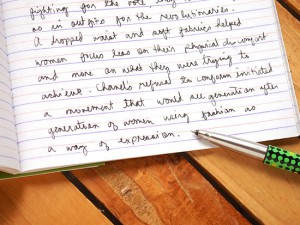 fighting for the vote they
as in outfits for the revolutionaries.
A dropped waist and soft fabrics helped
women focus less on their physical discomfort
and more on what they were trying to
achieve. Chanel's refusal to conform initiated
a movement that would see generation after
generation of women using fashion as
a way of expression.